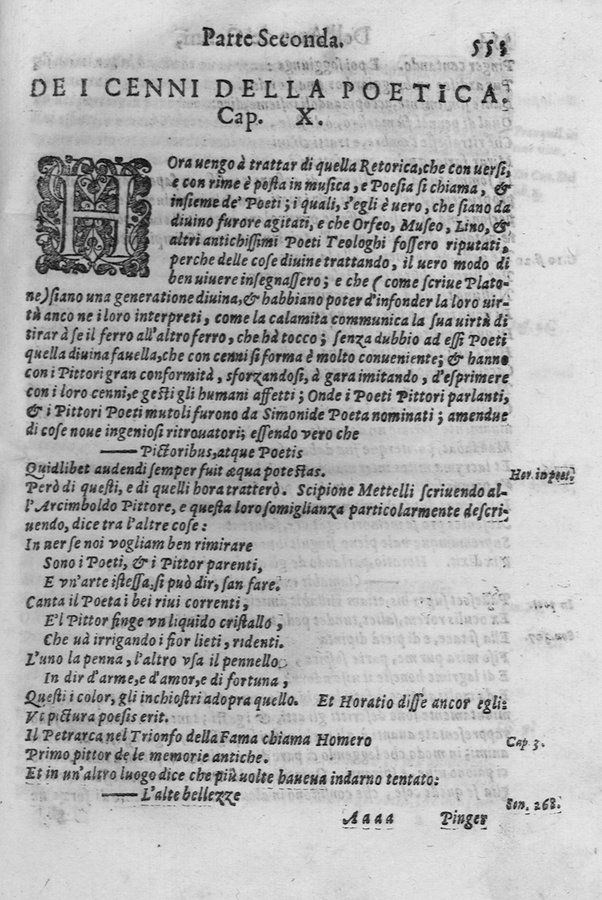 Parte Seconda. 553
DE I CENNI DELLA POETICA.
Cap. X.
HOra uengo à trattar di quella Retorica, che con uersi,
e con rime è posta in musica, e Poesia si chiama, &
insieme de' Poeti; i quali, s'egli è uero, che siano da
diuino furore agitati, e che Orfeo, Museo, Lino, &
altri antichissimi Poeti Teologhi fossero riputati,
perche delle cose diuine trattando, il uero modo di
ben uiuere insegnassero; e che (come scriue Plato-
ne) siano una generatione diuina, & habbiano poter d'infonder la loro uir-
tù anco ne i loro interpreti, come la calamita communica la sua uirtù di
tirar à se il ferro all'altro ferro, che hà tocco; senza dubbio ad essi Poeti
quella diuina fauella, che con cenni si forma è molto conueniente; & hanno
con i Pittori gran conformità, sforzandosi, à gara imitando, d'esprimere
con i loro cenni, e gesti gli humani affetti; Onde i Poeti Pittori parlanti,
& i Pittori Poeti mutoli furono da Simonide Poeta nominati; amendue
di cose noue ingeniosi ritrouatori; essendo vero che
—— Pictoribus, atque Poetis
Quidlibet audendi semper fuit æqua potestas. Hor. in poet.
Però di questi, e di quelli hora tratterò. Scipione Mettelli scriuendo al-
l'Arcimboldo Pittore, e questa loro somiglianza particolarmente descri-
uendo, dice tra l'altre cose:
In uer se noi vogliam ben rimirare
Sono i Poeti, & i Pittor parenti,
E vn'arte istessa, si può dir, san fare.
Canta il Poeta i bei riui correnti,
E'l Pittor finge vn liquido cristallo,
Che uà irrigando i fior lieti, ridenti.
L'uno la penna, l'altro vsa il pennello
In dir d'arme, e d'amor, e di fortuna,
Questi i color, gli inchiostri adopra quello. Et Horatio disse ancor egli:
Vt pictura poesis erit.
Il Petrarca nel Trionfo della Fama chiama Homero Cap 3.
Primo pittor de le memorie antiche.
Et in un'altro luogo dice che più uolte haueua indarno tentato:
—— L'alte bellezze Son. 268.
Aaaa Pinger